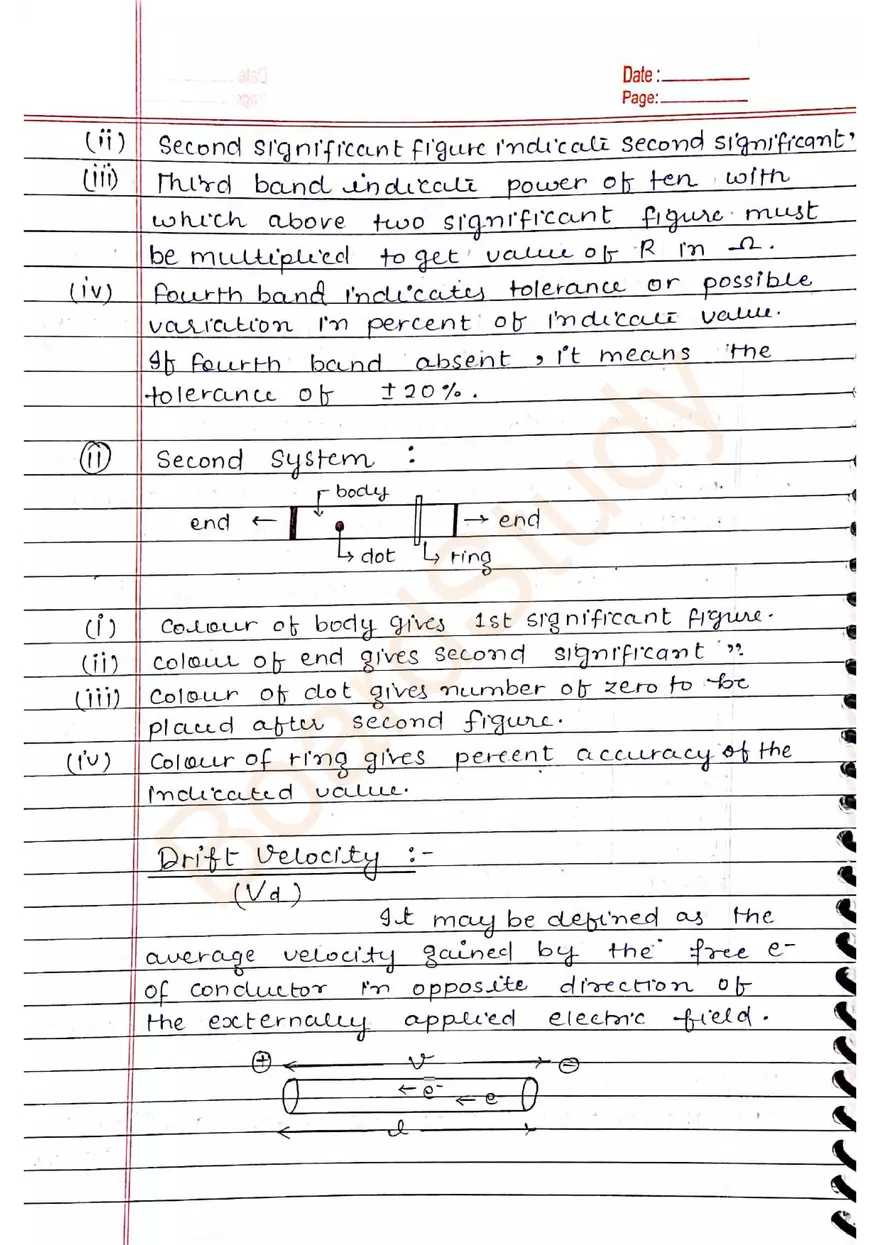 Date :
Page:
(ii) Second significant figure indicate second significant"
(iii) Third band indicate power of ten with
which above two significant figure must
be multiplied to get value of R in Ω.
(iv) fourth band indicates tolerance or possible
variation in percent of indicate value.
If fourth band absent, it means the
tolerance of ±20%.
(ii) Second System :
body
end ← → end
↳ dot ↳ ring
(i) Colour of body gives 1st significant figure.
(ii) colour of end gives second significant ".
(iii) Colour of dot gives number of zero to be
placed after second figure.
(iv) Colour of ring gives percent accuracy of the
indicated value.
Drift Velocity :-
(Vd)
It may be defined as the
average velocity gained by the free e-
of conductor in opposite direction of
the externally applied electric field.
+ ← V → -
← e- ← e
← l →
BoardStudy